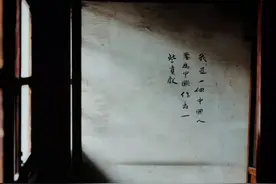 我是一個中國人
要為中國作出一
些貢獻